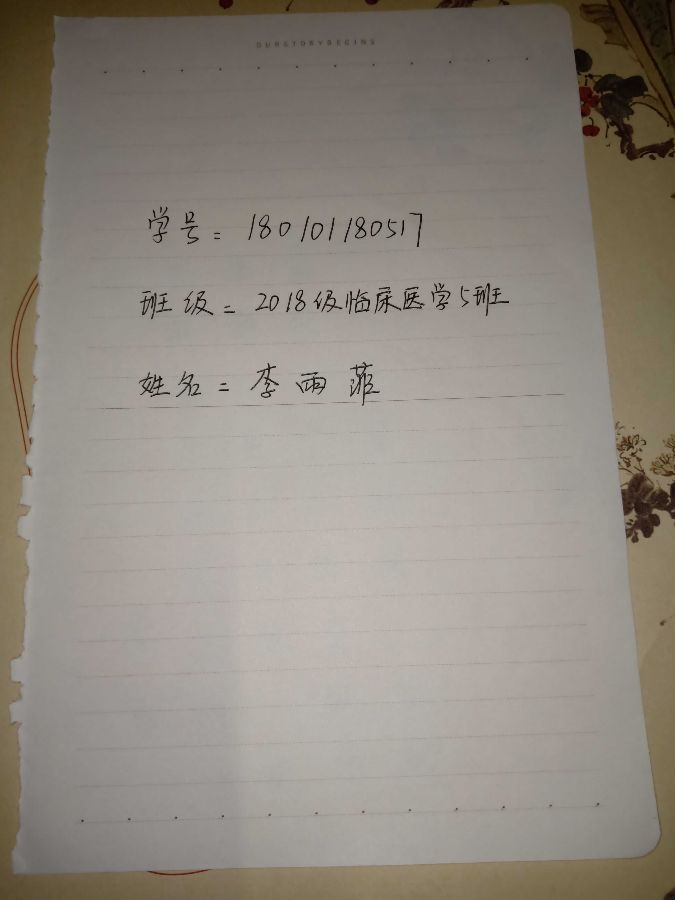 OURSTORYBEGINS
学号: 180101180517
班级: 2018级临床医学5班
姓名: 李雨菲